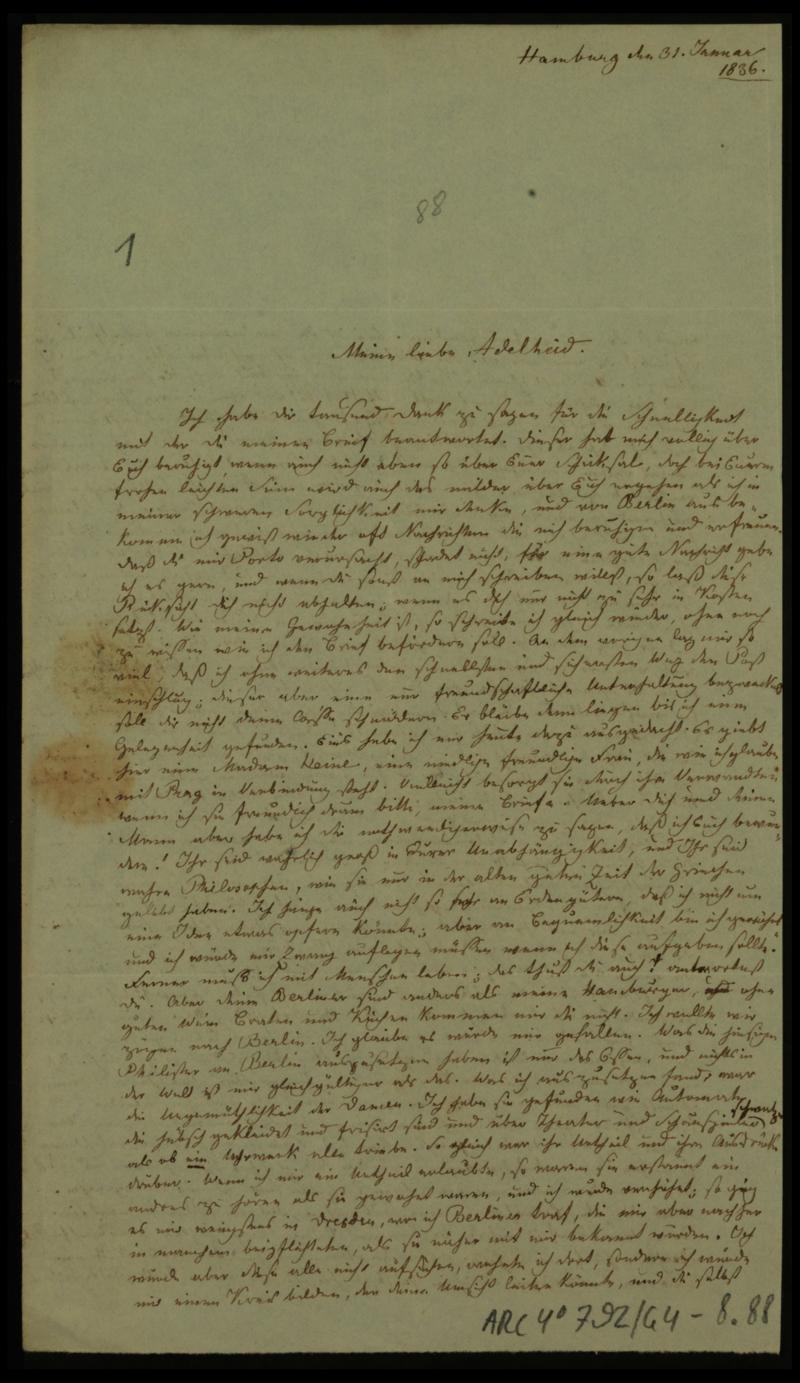 Hamburg den 31. Januar
1836.
88
1
Meine liebe Adelheid.
Ich habe dir tausend Dank zu sagen für die Schnelligkeit
mit der du meinen Brief beantwortet. Dieser hat mich völlig über
Euch beruhigt wenn auch nicht eben so über Euer Schicksal, doch bei Eurem
frohen leichten Sinn wird auch das milder über Euch ergehen als ich in
meiner schweren Sorglichkeit mir denke, und von Berlin aus be-
komme ich gewiß wieder oft Nachrichten die mich beruhigen und erfreuen.
Daß du mir Porto verursacht, schadet nicht, für eine gute Nachricht gebe
ich es gern, und wenn du sonst an mich schreiben willst, so laß diese
Rücksicht dich nicht abhalten; wenn es dich nur nicht zu sehr in Kosten
setzt. Wie meine Gewohnheit ist, so schreibe ich gleich wieder, ohne noch
zu wissen wie ich den Brief befördern soll. An dem vorigen lag mir so
viel, daß ich ohne weiteres den schnellsten und sichersten Weg der Post
einschlug; dieser aber eine nur freundschaftliche Unterhaltung bezweckend
soll dir nicht deine Casse schmälern. Er bleibe denn liegen bis ich eine
Gelegenheit gefunden. Eins habe ich mir heute dazu ausgedacht. Es giebt
hier eine Madam Heine, eine niedliche freundliche Frau, die wie ich glaube
mit Prag in Verbindung steht. Vielleicht besorgt sie durch ihre Verwandten
wenn ich sie freundlich drum bitte, meine Briefe. Ueber dich und deinen
Mann aber habe ich dir nothwendigerweise zu sagen, daß ich Euch bewun-
dere! Ihr seid wahrlich groß in Eurer Unabhängigkeit, und Ihr seid
wahre Philosophen, wie sie nur in der alten guten Zeit der Griechen
gelebt haben. Ich hänge auch nicht so sehr an Erdengütern, daß ich nicht um
eine Idee etwas opfern könnte; aber an Bequemlichkeit bin ich gewöhnt
und ich würde mir Zwang auflegen müssen wenn ich diese aufgeben sollte.
Ferner muß ich mit Menschen leben; das thust du auch! antwortest
du. Aber deine Berliner sind anders als meine Hamburger, ohne
guten Wein Braten und Kuchen kommen mir die nicht. Ich wollte wir
zögen nach Berlin. Ich glaube es würde mir gefallen. Was die hiesigen
Philister an Berlin auszusetzen haben ist nur das Essen, und nichts in
der Welt ist mir gleichgültiger als das. Was ich auszusetzen fand, war
die Ungemüthlichkeit der Damen. Ich habe sie gefunden wie Automate,
die hübsch gekleidet und frisirt sind und über Theater und Schauspieler schwatzen
als ob ein Uhrwerk alle triebe. So gleich war ihr Urtheil und ihre Ausdrücke
darüber. Wenn ich mir ein Urtheil erlaubte, so waren sie erstaunt ein
anderes zu hören als sie gewohnt waren, und ich wurde verhöhnt; so ging
es mir wenigstens in Dresden, wo ich Berliner traf, die mir aber nachher
in manchem beipflichteten, als sie näher mit mir bekannt wurden. Ich
würde aber diese alle nicht aufsuchen, wohnte ich dort, sondern ich würde
mir einen Kreis bilden, den deine Umsicht leiten könnte, und du selbst
ARC 4° 792/G4 - 8.88